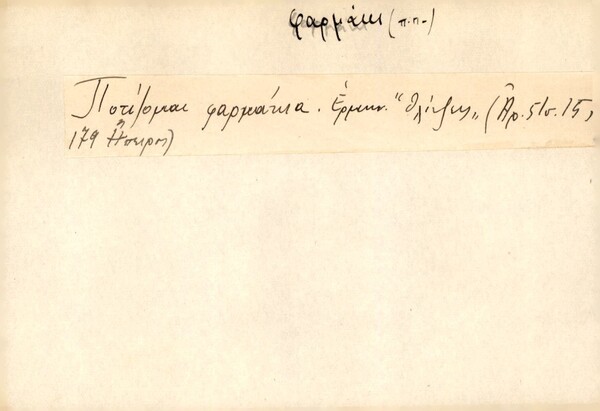 φαρμάκι (π.π.)
Ποτίζομαι φαρμάκια. Ἑρμην. "θλίψεις" (Ἀρ. 51σ. 15,
179 Ἤπειρος)